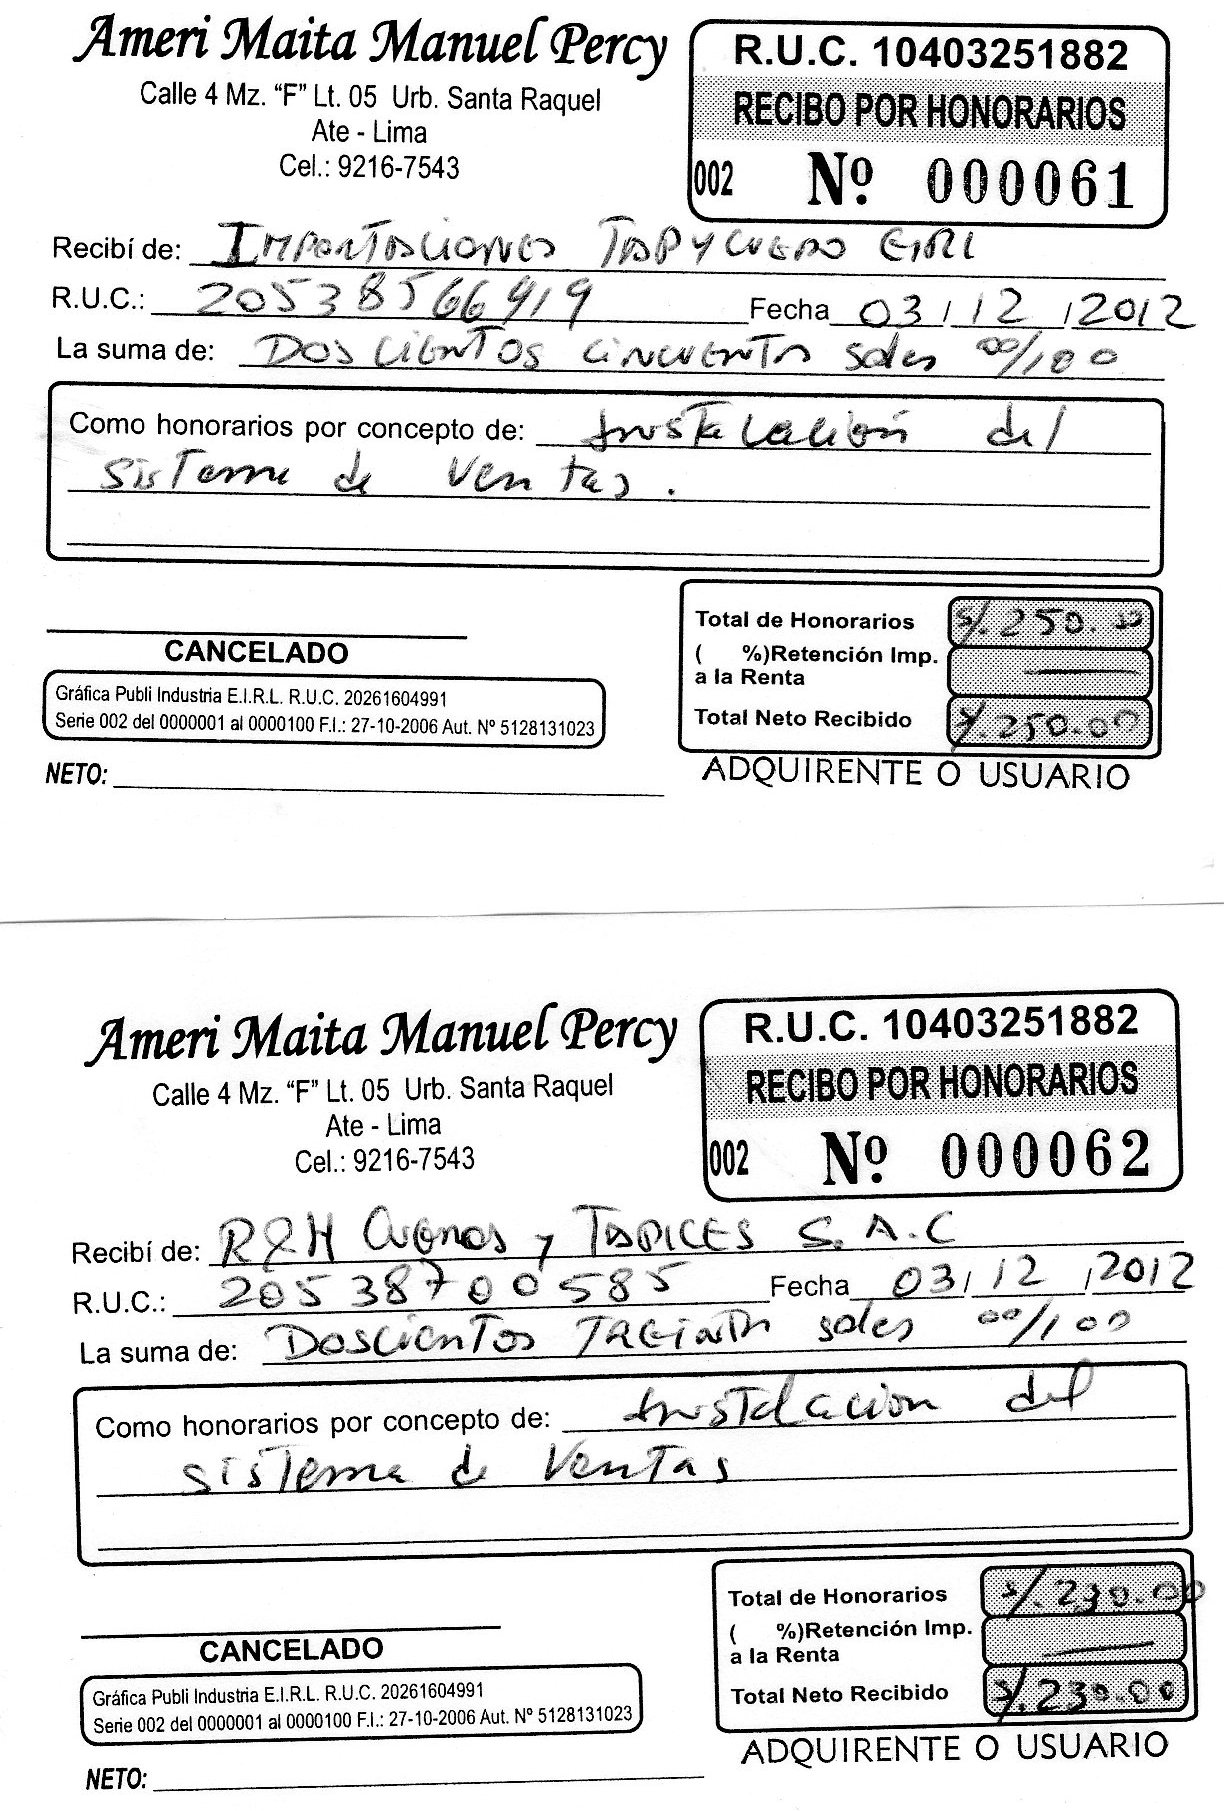 Ameri Maita Manuel Percy
Calle 4 Mz. “F” Lt. 05 Urb. Santa Raquel
Ate - Lima
Cel.: 9216-7543
R.U.C. 10403251882
RECIBO POR HONORARIOS
002 Nº 000061
Recibí de: IMPORTACIONES TAPYCUERO EIRL
R.U.C.: 20538566919 Fecha 03/12/2012
La suma de: DOSCIENTOS CINCUENTA soles 00/100
Como honorarios por concepto de: Instalación del
sistema de Ventas.
CANCELADO
Gráfica Publi Industria E.I.R.L. R.U.C. 20261604991
Serie 002 del 0000001 al 0000100 F.I.: 27-10-2006 Aut. Nº 5128131023
NETO:
Total de Honorarios S/. 250.00
( %)Retención Imp.
a la Renta —
Total Neto Recibido S/. 250.00
ADQUIRENTE O USUARIO
Ameri Maita Manuel Percy
Calle 4 Mz. “F” Lt. 05 Urb. Santa Raquel
Ate - Lima
Cel.: 9216-7543
R.U.C. 10403251882
RECIBO POR HONORARIOS
002 Nº 000062
Recibí de: R&H Cueros y TAPICES S.A.C
R.U.C.: 20538700585 Fecha 03/12/2012
La suma de: DOSCIENTOS TREINTA soles 00/100
Como honorarios por concepto de: Instalacion del
sistema de Ventas
CANCELADO
Gráfica Publi Industria E.I.R.L. R.U.C. 20261604991
Serie 002 del 0000001 al 0000100 F.I.: 27-10-2006 Aut. Nº 5128131023
NETO:
Total de Honorarios S/. 230.00
( %)Retención Imp.
a la Renta —
Total Neto Recibido S/. 230.00
ADQUIRENTE O USUARIO